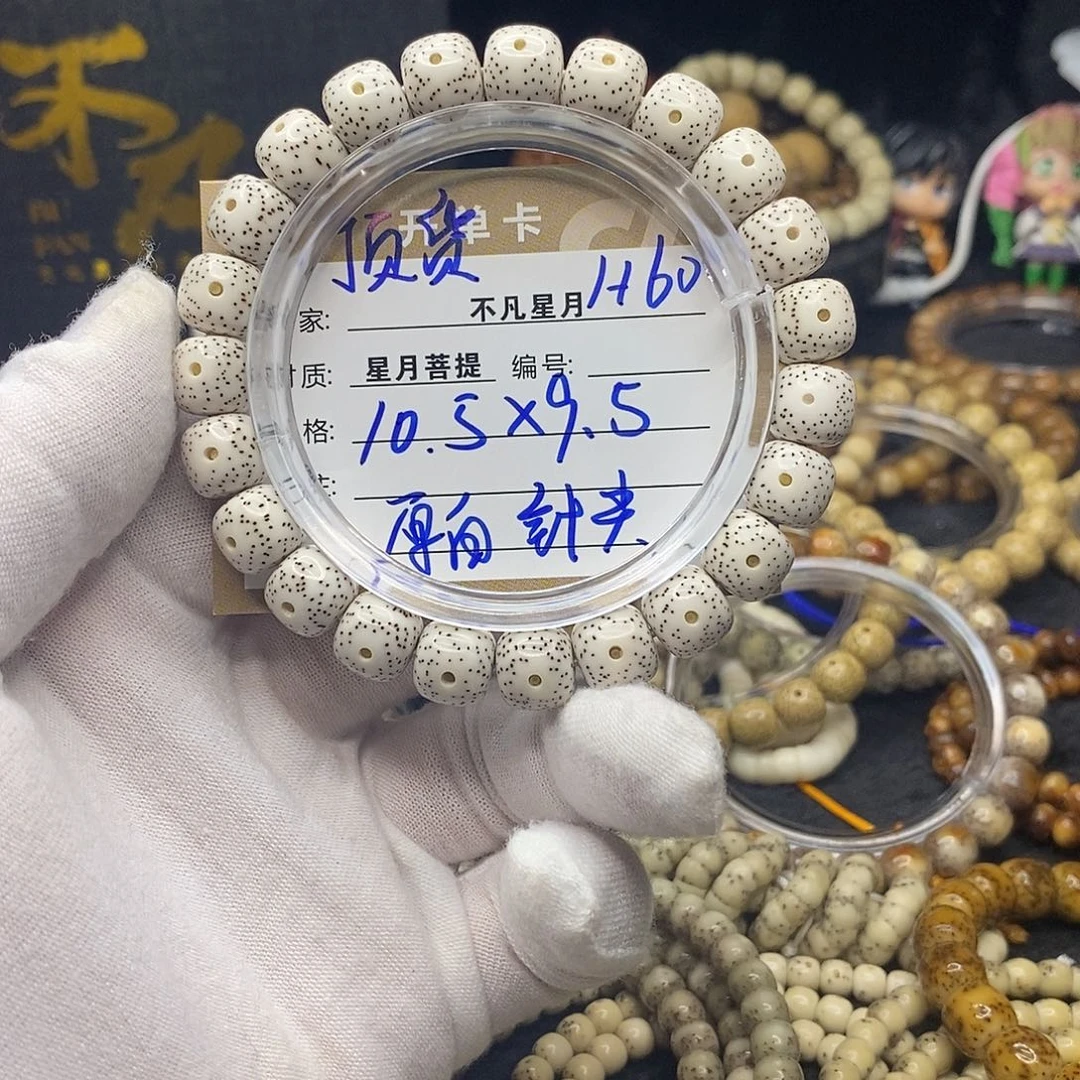 不凡
BU
FAN
开单卡
顶货
H60
家: 不凡星月
材质: 星月菩提 编号:
格: 10.5×9.5
原白 針尖